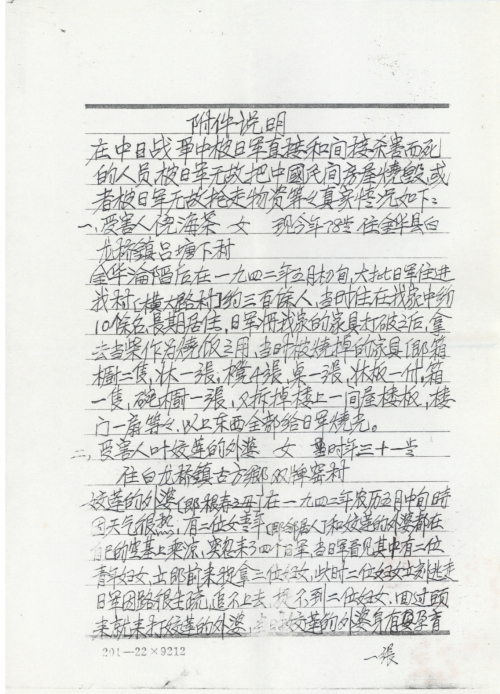 附件说明
在中日战争中被日军直接和间接杀害而死
的人员,被日军无故把中國民间房屋燒毁,或
者被日军无故抢走物资等之真实情况如下:
一,受害人倪海菜 女 现今年78岁 住金华县白
龙桥鎮吕塘下村
金华淪陷后在一九四二年五月初旬,大批日军住进
我村[横大路村]约三百馀人,当时住在我家中约
10馀名長期居住,日军将我家的家具打破之后,拿
去当柴作为燒饭之用,当时被燒掉的家具(即箱
橱二隻,床一張,櫈4張,桌一張,床板一付,箱
一隻,碗橱一張,又拆掉楼上一间屋楼板,楼
门一扇等々,以上东西全部给日军燒光。
二,受害人叶姣莲的外婆 女 当时年三十一岁
住白龙桥鎮古方鄉双牌窑村
姣莲的外婆(即根春之母)在一九四二年农历五月中旬時
因天气很热,有二位女青年(即鄰居人)和姣莲的外婆都在
自己的堂基上乘凉,突忽来3四个日军,当日军看見其中有二位
青年妇女,立即前来捉拿二位妇女,此时二位妇女立刻逃走
日军因路很生疏,追不上去,捉不到二位妇女,回过頭
来就来打姣莲的外婆,当时姣莲的外婆身有孕育
204—22×9212
一張